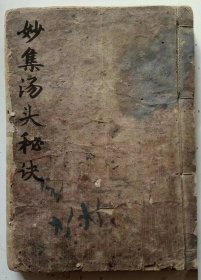 妙集汤头秘诀